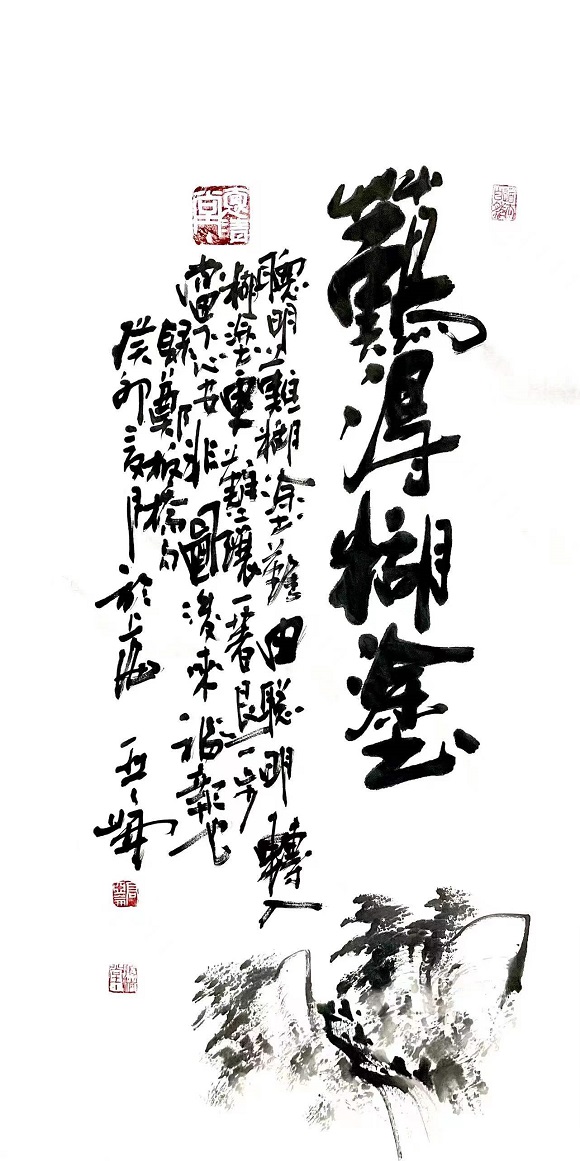 難得糊塗
聰明難糊塗難由聰明轉入
糊塗更難讓一著退一步
當下心安非圖後來福報也
錄鄭板橋句
癸卯夏月於上海